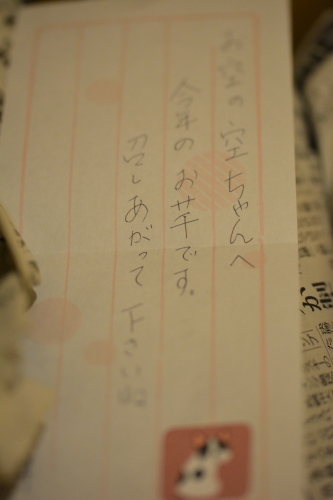 お空の空ちゃんへ
今年のお芋です。
召しあがって下さいね